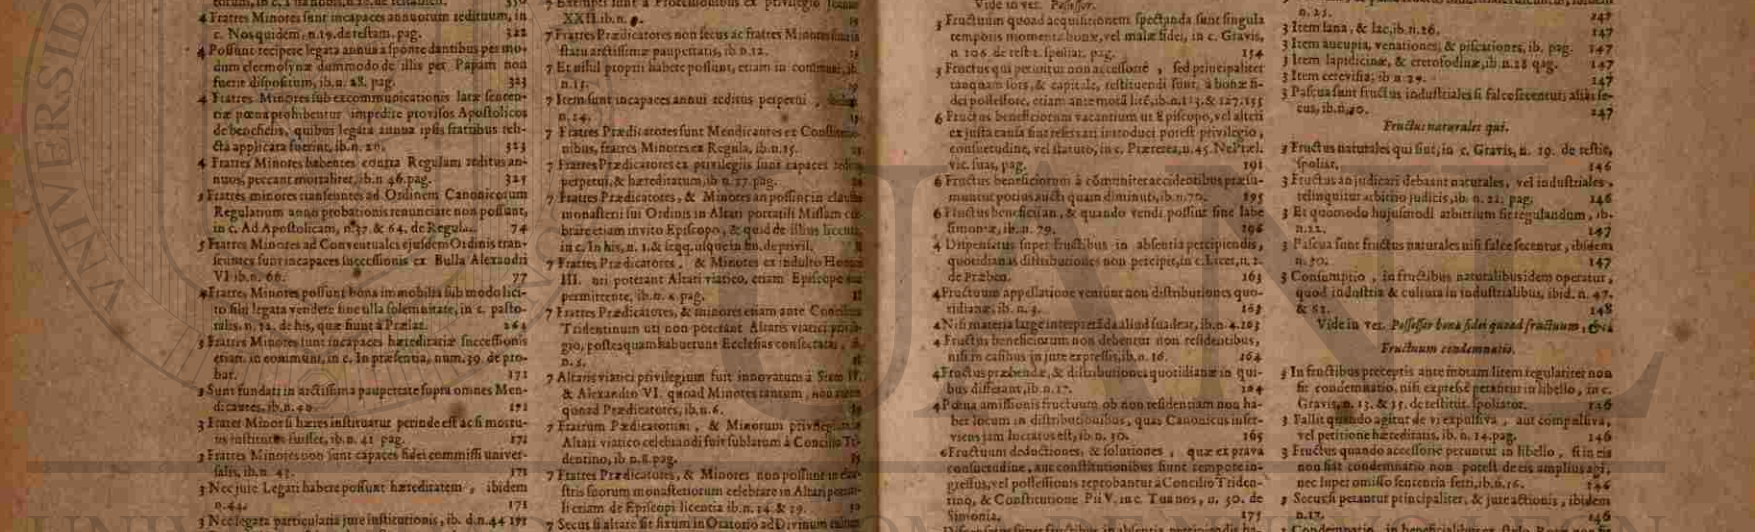 4 Fratres Minores sunt incapaces annuorum redituum, in
c. Nos quidem, n.19. de testam. pag. 322
4 Possunt recipere legata annua à sponte dantibus per mo-
dum eleemosynæ dummodo de illis per Papam non
fuerit dispositum, ib. n. 28. pag. 323
4 Fratres Minores sub excommunicationis latæ senten-
tiæ pœna prohibentur impedire provisos Apostolicos
de beneficiis, quibus legata annua ipsis fratribus reli-
cta applicata fuerint, ib. n. 26. 323
4 Fratres Minores habentes contra Regulam reditus an-
nuos, peccant mortaliter, ib. n 46. pag. 325
5 Fratres minores transeuntes ad Ordinem Canonicorum
Regularium anno probationis renunciare non possunt,
in c. Ad Apostolicam, n. 37. & 64. de Regula. 74
5 Fratres Minores ad Conventuales ejusdem Ordinis tran-
seuntes sunt incapaces successionis ex Bulla Alexandri
VI. ib. n. 66. 77
4 Fratres Minores possunt bona immobilia sub modo lici-
to sibi legata vendere sine ulla solemnitate, in c. pasto-
ralis, n. 12. de his, quæ fiunt à Prælat. 262
3 Fratres Minores sunt incapaces hæreditariæ successionis
etiam in communi, in c. In præsentia, num. 39. de pro-
bat. 171
3 Sunt fundati in arctissima paupertate supra omnes Men-
dicantes, ib. n. 40. 171
3 Frater Minor si hæres instituatur perinde est ac si mortu-
us institutus fuisset, ib. n. 41 pag. 171
3 Fratres Minores non sunt capaces fidei commissi univer-
salis, ib. n. 43. 171
3 Nec jure Legati habere possunt hæreditatem, ibidem
n. 44. 171
3 Nec legata particularia jure institutionis, ib. d. n. 44 171
XXII. ib. n.
7 Fratres Prædicatores non secus ac fratres Minores
statu arctissimæ paupertatis, ib. n. 12.
7 Et nihil proprii habere possunt, etiam in communi, ib.
n. 13.
7 Item sunt incapaces annui reditus perpetui,
n. 14.
7 Fratres Prædicatores sunt Mendicantes ex Constitutio-
nibus, fratres Minores ex Regula, ib. n. 15.
7 Fratres Prædicatores ex privilegiis sunt capaces
perpetui, & hæreditatum, ib n. 17. pag.
7 Fratres Prædicatores, & Minores an possint in
monasterii sui Ordinis in Altari portatili Missam
brare etiam invito Episcopo, & quid de illius licentia,
in c. In his, n. 1. & seqq. usque in fin. de privil.
7 Fratres Prædicatores, & Minores ex indulto
III. uti poterant Altari viatico, etiam Episcopo
permittente, ib. n. 4. pag.
7 Fratres Prædicatores, & minores etiam ante Concilium
Tridentinum uti non poterant Altaris viatici
gio, posteaquam habuerunt Ecclesias consecratas,
n. 5.
7 Altaris viatici privilegium fuit innovatum à Sixto IV.
& Alexandro VI. quoad Minores tantum,
quoad Prædicatores, ib. n. 6.
7 Fratrum Prædicatorum, & Minorum
Altari viatico celebrandi fuit sublatum à Concilio Tri-
dentino, ib n. 8. pag.
7 Fratres Prædicatores, & Minores non possunt in
stris suorum monasteriorum celebrare in Altari
li etiam de Episcopi licentia ib. n. 14. & 19.
7 Secus si altare sit fixum in Oratorio ad Divinum
Vide in ver. Possessor.
3 Fructuum quoad acquisitionem spectanda sunt singula
temporis momenta bonæ, vel malæ fidei, in c. Gravis,
n 106. de restit. spoliat. pag. 154
3 Fructus qui petuntur non accessoriè, sed principaliter
tanquam sors, & capitale, restituendi sunt, à bonæ fi-
dei possessore, etiam ante motâ lite, ib. n. 113. & 127. 155
6 Fructus beneficiorum vacantium ut Episcopo, vel alteri
ex justa causa sint reservati introduci potest privilegio,
consuetudine, vel statuto, in c. Præterea, n. 45. Ne Præl.
vic. suas, pag. 191
6 Fructus beneficiorum à cómuniter accidentibus præsu-
muntur potius aucti quam diminuti, ib. n. 70. 195
6 Fructus beneficii an, & quando vendi possint sine labe
simoniæ, ib. n. 79. 196
4 Dispensatus super fructibus in absentia percipiendis,
quotidianas distributiones non percipit, in c. Licet, n. 2.
de Præben. 163
4 Fructuum appellatione veniunt non distributiones quo-
tidianæ, ib. n. 3. 163
4 Nisi materia large interpretâda aliud suadeat, ib. n. 4. 163
4 Fructus beneficiorum non debentur non residentibus,
nisi in casibus in jure expressis, ib. n. 16. 164
4 Fructus præbendæ, & distributiones quotidianæ in qui-
bus differant, ib. n. 17. 164
4 Pœna amissionis fructuum ob non residentiam non ha-
bet locum in distributionibus, quas Canonicus inser-
viens jam lucratus est, ib. n. 30. 165
6 Fructuum deductiones, & solutiones, quæ ex prava
consuetudine, aut constitutionibus fiunt tempore in-
gressus, vel possessionis reprobantur à Concilio Triden-
tino, & Constitutione Pii V. in c. Tua nos, n. 50. de
Simonia. 175
n. 25. 147
3 Item lana, & lac, ib. n. 26. 147
3 Item aucupia, venationes, & piscationes, ib. pag. 147
3 Item lapidicinæ, & cretofodinæ, ib. n. 28 pag. 147
3 Item cerevisia, ib n. 29. 147
3 Pascua sunt fructus industriales si falce secentur, aliàs se-
cus, ib. n. 30. 147
Fructus naturales qui.
3 Fructus naturales qui sint, in c. Gravis, n. 19. de restit.
spoliat. 146
3 Fructus an judicari debeant naturales, vel industriales,
relinquitur arbitrio judicis, ib. n. 21. pag. 146
3 Et quomodo hujusmodi arbitrium sit regulandum, ib.
n. 22. 147
3 Pascua sunt fructus naturales nisi falce secentur, ibidem
n. 30. 147
3 Consumptio, in fructibus naturalibus idem operatur,
quod industria & cultura in industrialibus, ibid. n. 47.
& 61. 148
Vide in ver. Possessor bonæ fidei quoad fructuum, &c.
Fructuum condemnatio.
3 In fructibus perceptis ante motam litem regulariter non
fit condemnatio, nisi expresè petantur in libello, in c.
Gravis, n. 13. & 15. de restitut. spoliator. 146
3 Fallit quando agitur de vi expulsiva, aut compulsiva,
vel petitione hæreditatis, ib. n. 14. pag. 146
3 Fructus quando accessoriè petuntur in libello, si in eis
non fiat condemnatio non potest de eis amplius agi,
nec super omisso sententia ferri, ib. n. 16. 146
3 Secus si petantur principaliter, & jure actionis, ibidem
n. 17. 146
UANL